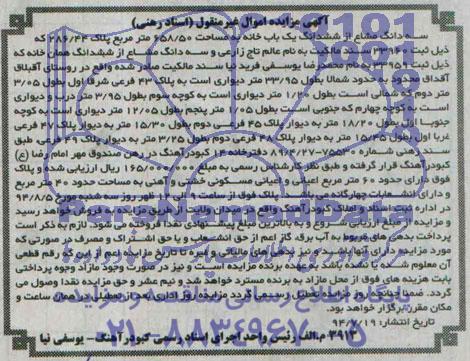 آگهی مزایده اموال غیرمنقول (اسناد رهنی)
سه دانگ مشاع از ششدانگ یک باب خانه به مساحت ۶۵۸/۵۰ متر مربع پلاک
ذیل ثبت ۳۳۹۴۰ سند مالکیت به نام عالم تاج زارعی و سه دانگ مشاع از ششدانگ همان خانه که
ذیل ثبت به نام محمدرضا یوسفی فرید نیا سند مالکیت صادر شده واقع در روستای آقبلاق
آقداق محدود به حدود شمالا بطول ۳۳/۹۵ متر دیواری است به پلاک ۴۳ فرعی شرقا اول بطول ۳/۰۵
متر دوم که شمالی است بطول ۱/۲۰ متر دیواری است به کوچه سوم بطول ۳/۹۵ متر درب و دیواری
است به کوچه چهارم که جنوبی است بطول ۱/۰۵ متر پنجم بطول ۱۲/۰۵ متر دیواری است به کوچه
جنوبا اول بطول ۱۸/۲۰ متر به دیوار پلاک ۴۵ فرعی دوم بطول ۱۵/۳۰ متر به دیوار پلاک فرعی
غربا اول بطول ۱۵/۴۵ متر به دیوار پلاک ۴۸ فرعی دوم بطول متر به دیوار پلاک فرعی طبق
سند رهنی شماره دفترخانه ۱۴ کبودرآهنگ در رهن صندوق مهر امام رضا (ع)
کبودرآهنگ قرار گرفته و طبق نظر کارشناس رسمی به مبلغ ریال ارزیابی شده و پلاک
فوق دارای حدود ۶۰ متر مربع اعیانی مسکونی خشتی و آهنی به مساحت حدود ۴۰ متر مربع
و دارای انشعابات چهارگانه می باشد پلاک فوق از ساعت ۹ الی ۱۲ ظهر روز سه شنبه مورخ ۹۴/۸/۵
در اداره ثبت اسناد و املاک کبودرآهنگ واقع در میدان ولایت از طریق مزایده به فروش خواهد رسید
و مزایده از مبلغ ارزیابی شروع و به بالاترین مبلغ پیشنهادی نقدا فروخته می شود. لازم به ذکر است
پرداخت بدهی های مربوط به آب، برق، گاز اعم از حق انشعاب و یا حق اشتراک و مصرف در صورتی که
مورد مزایده دارای آنها باشد و نیز بدهی های مالیاتی و غیره تا تاریخ مزایده اعم از این که رقم قطعی
آن معلوم شده یا نشده باشد به عهده برنده مزایده است و نیز در صورت وجود مازاد وجوه پرداختی
بابت هزینه های فوق از محل مازاد به برنده مسترد خواهد شد و نیم عشر و حق مزایده نقدا وصول می
گردد. ضمنا چنانچه روز مزایده تعطیل رسمی گردد مزایده روز اداری بعد از تعطیلی در همان ساعت و
مکان مقرر برگزار خواهد بود.
تاریخ انتشار: ۹۴/۷/۱۹
۳۹۱۳ م.الف رئیس واحد اجرای اسناد رسمی کبودرآهنگ – یوسفی نیا
پایگاه اطلاع رسانی مناقصه و مزایده
۰۲۱-۸۸۳۴۹۶۷۰-۵